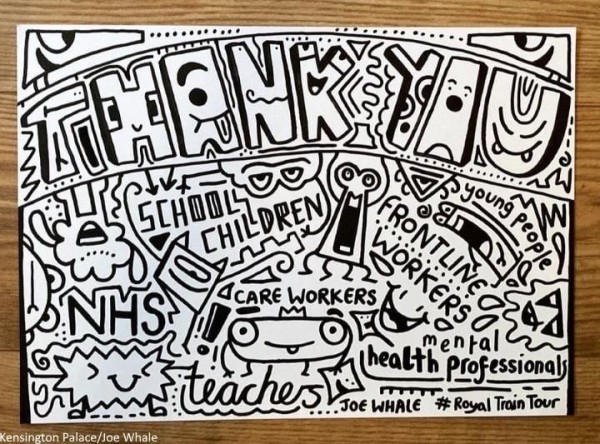 THANK YOU
SCHOOL
CHILDREN
young people
FRONTLINE
WORKERS
NHS
CARE WORKERS
mental
health professionals
teachers
JOE WHALE #Royal Train Tour
Kensington Palace/Joe Whale